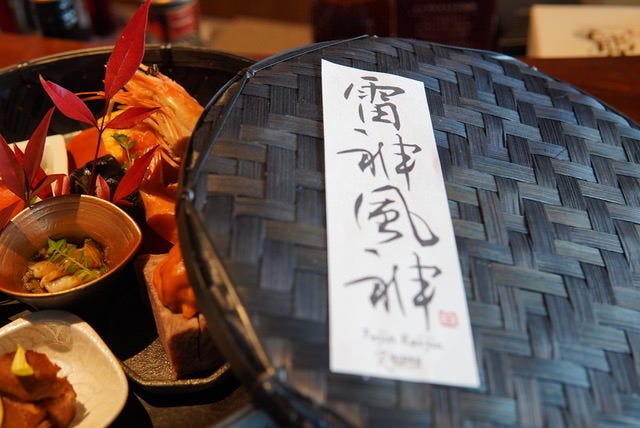 雷神風神
Fujin Raijin